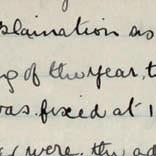 plaination as
of the year, t
was fixed at 1
were the ad